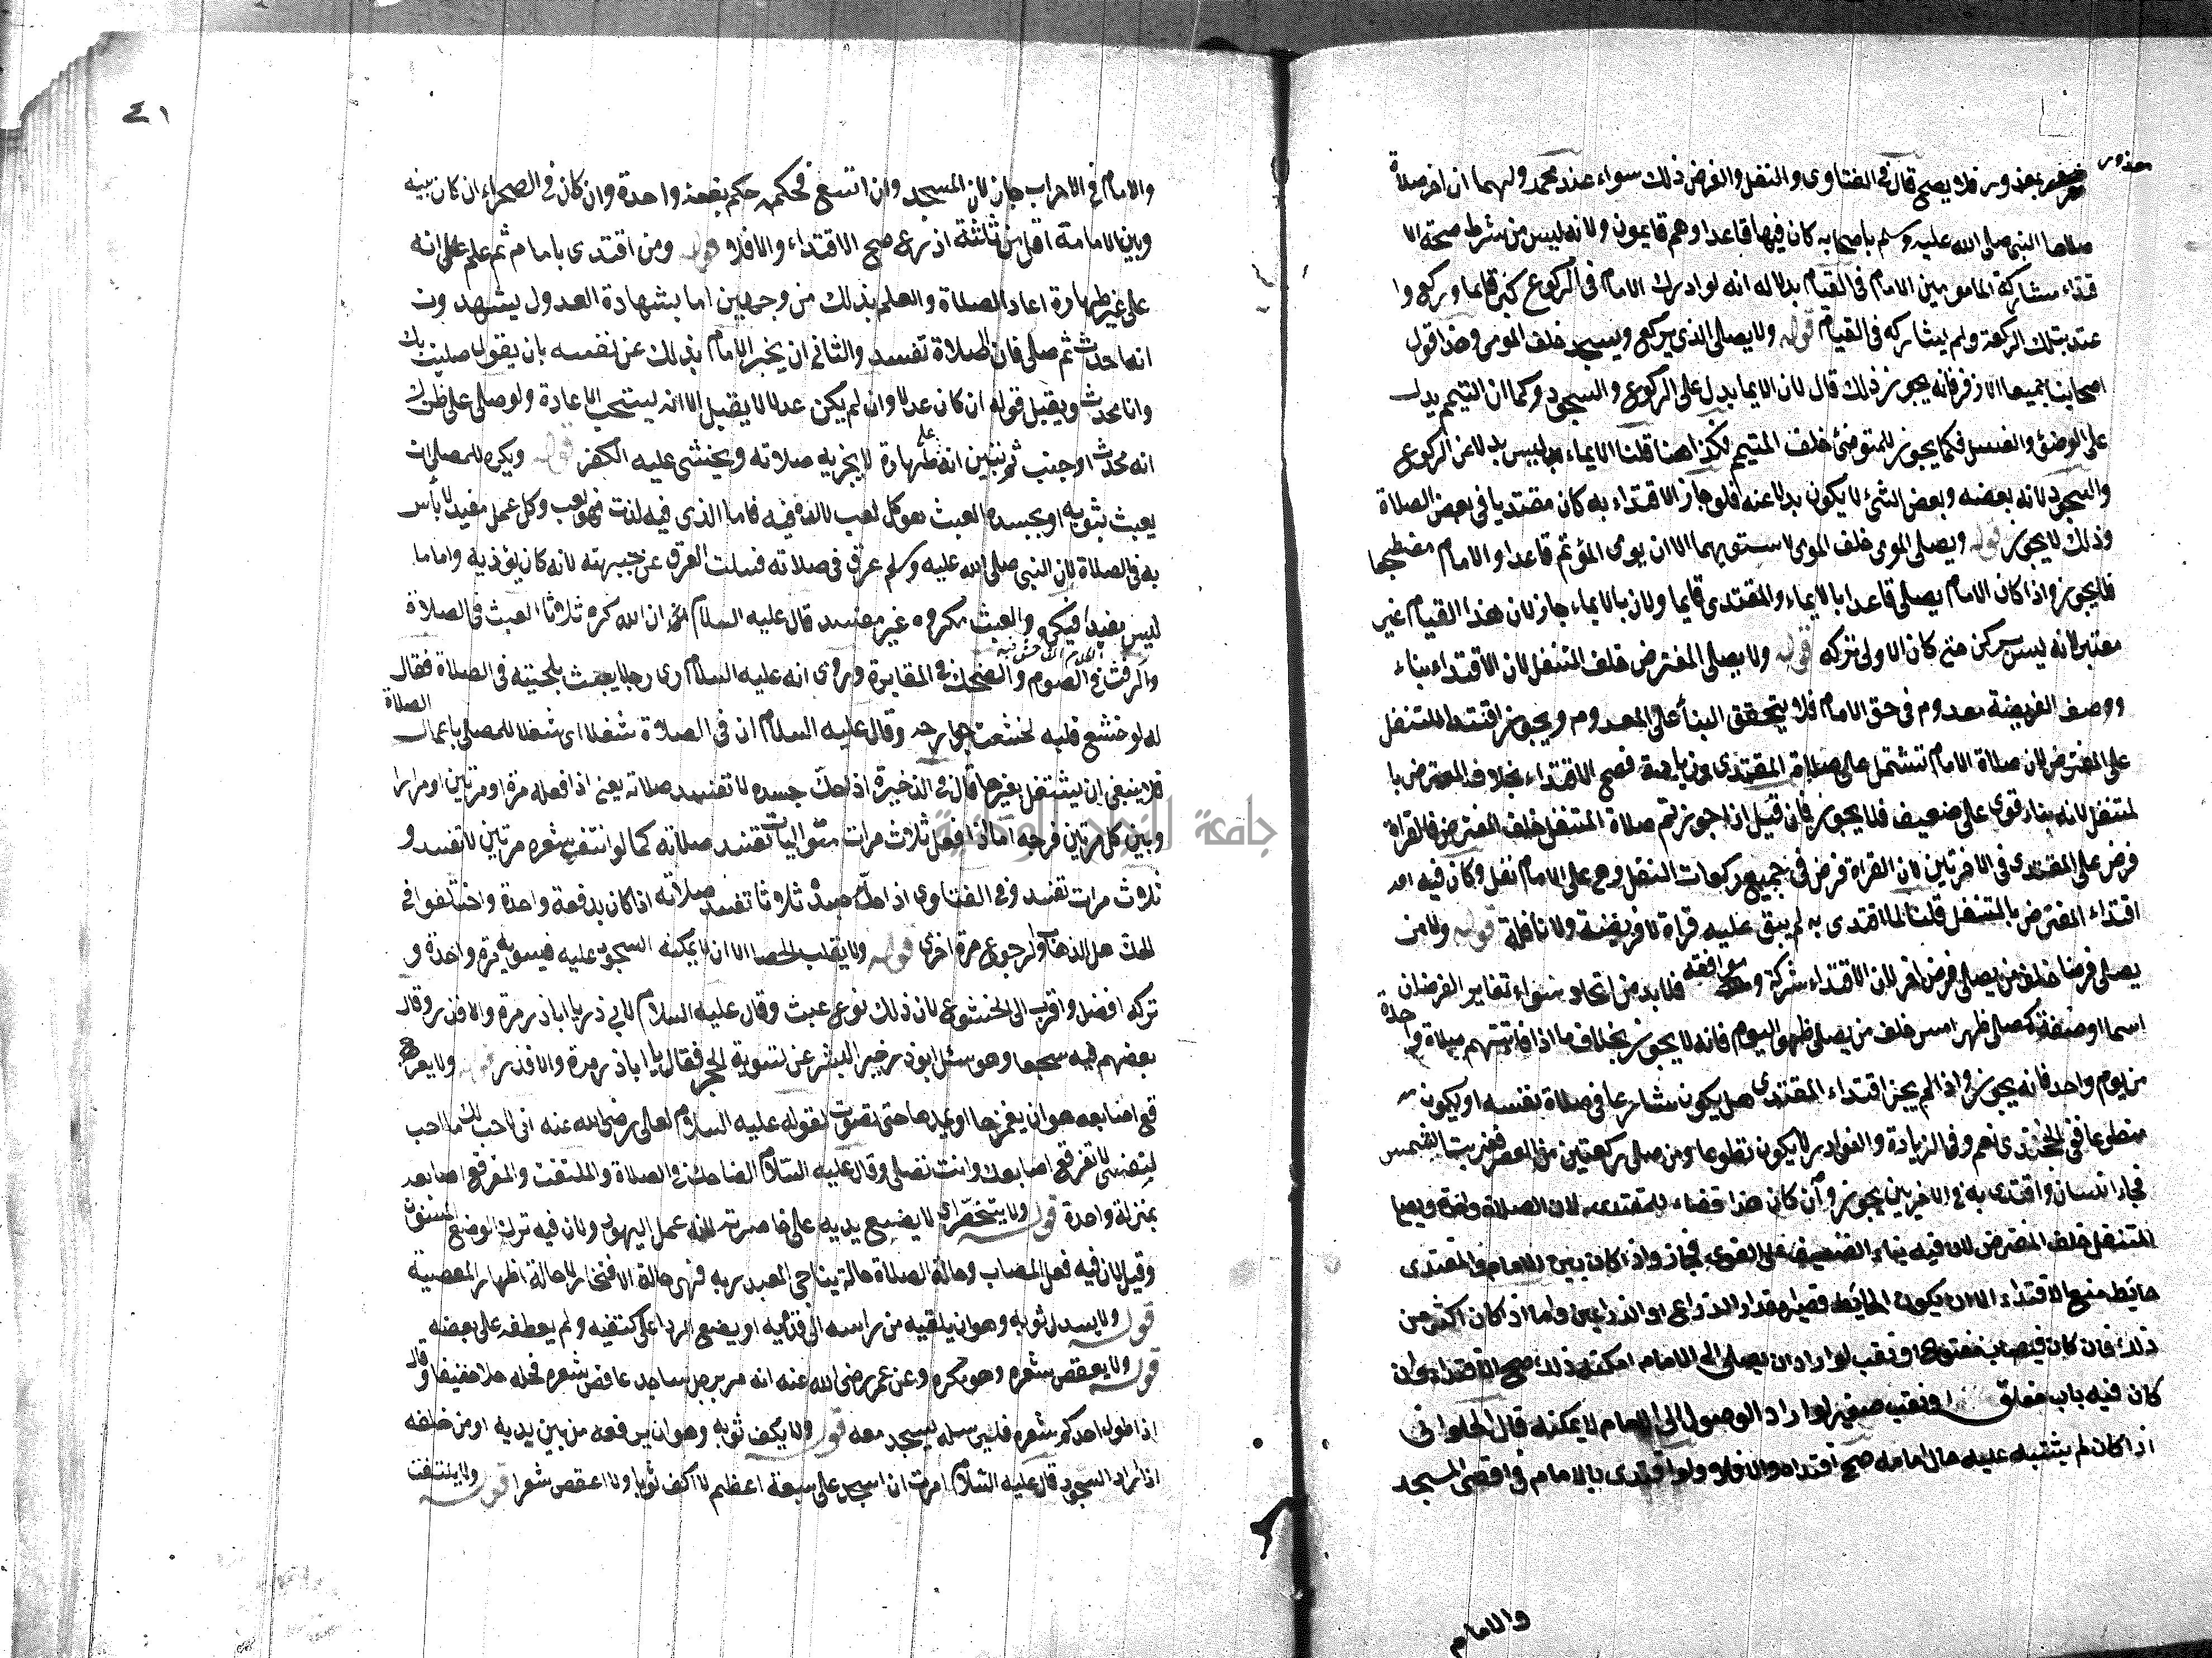 معذور
بمعذور فلا يصح قال في الفتاوى والنفل والفرض ذلك سواء عند محمد ولهما ان اخر صلاة
صلاها النبي صلى الله عليه وسلم باصحابه كان فيها قاعدا وهم قايمون ولانه ليس من شرط صحة الا
قتداء مشاركة المامومين الامام في القيام بدلالة انه لو ادرك الامام في الركوع كبر قايما وركع وا
عتد بتلك الركعة ولم يشاركه في القيام قوله ولا يصلي الذي يركع ويسجد خلف المومي وهذا قول
اصحابنا جميعا الا زفر فانه يجوز ذلك قال لان الايما بدل على الركوع والسجود وكما ان التيمم بدل
على الوضئ والغسل فكما يجوز للمتوضئ خلف المتيمم فكذا هنا قلنا الايماء ليس بدلا عن الركوع
والسجود لانه بعضه وبعض الشئ لا يكون بدلا عنه فلو جاز الاقتداء به كان مقتديا في بعض الصلاة
وذلك لا يجوز قوله ويصلي المومي خلف المومي لاستوائهما الا ان يومى المؤتم قاعدا والامام مضطجعا
فلا يجوز واذا كان الامام يصلي قاعدا بالايماء والمقتدى قايما ولان بالايماء جاز لان هذا القيام غير
معتبر لانه ليس بركن حتى كان الاولى تركه قوله ولا يصلي المفترض خلف المتنفل لان الاقتداء بناء
ووصف الفريضة معدوم في حق الامام فلا يتحقق البناء على المعدوم ويجوز اقتداء المتنفل
على المفترض لان صلاة الامام تشتمل على صلاة المقتدى وزيادة فصح الاقتداء بخلاف المفترض با
لمتنفل لانه بناء قوي على ضعيف فلا يجوز فان قيل اذا جوزتم صلاة المتنفل خلف المفترض فالقراة
فرض على المقتدى في الاخرتين لان القراة فرض في جميع ركعات النفل وهي على الامام نفل وكان فيه
اقتداء المفترض بالمتنفل قلنا لما اقتدى به لم يبق عليه قراة لا فريضة ولا نافلة قوله ولا من
يصلي فرضا خلف من يصلي فرض اخر لان الاقتداء شركة وموافقة فلا بد من اتحاد سواء تغاير الفرضان
اسما او صفة كمصلى ظهر امس خلف من يصلي ظهر اليوم فانه لا يجوز بخلاف ما اذا فاتتهم صلاة واحدة
من يوم واحد فانه يجوز واذا لم يجز اقتداء المقتدى هل يكون شارعا في صلاة نفسه او يكون
متطوعا ففي الخجندى نعم وفي الزيادة والنوادر لا يكون تطوعا ومن صلى ركعتين من العصر فغربت الشمس
فجاء انسان واقتدى به في الاخريين يجوز وان كان هذا قضاء للمقتدى لان الصلاة واحدة ويصلي
المتنفل خلف المفترض لان فيه بناء الضعيف على القوى فجاز واذا كان بين الامام والمقتدى
حايط منع الاقتداء الا ان يكون الحائط قصيرا مقدار الذراع او الذراعين واما اذا كان اكثر من
ذلك فان كان فيه باب مفتوح او نقب لو اراد ان يصلي الى الامام امكنه ذلك صح الاقتداء وان
كان فيه باب مغلق او نقب صغير لو اراد الوصول الى الامام لا يمكنه قال الحلواني
اذا كان لم يشتبه عليه حال امامه صح اقتداه والا فلا ولو اقتدى بالامام في اقصى المسجد
والامام
٤١
والامام في المحراب جاز لان المسجد وان اتسع فحكمه حكم بقعة واحدة وان كان في الصحراء ان كان بينه
وبين الامامة اقل من ثلثة اذرع صح الاقتداء والا فلا قوله ومن اقتدى بامام ثم علم على انه
على غير طهارة اعاد الصلاة والعلم بذلك من وجهين اما بشهادة العدول يشهدون
انه احدث ثم صلى فان الصلاة تفسد والثاني ان يخبر الامام بذلك عن نفسه بان يقول صليت بك
وانا محدث ويقبل قوله ان كان عدلا وان لم يكن عدلا لا يقبل الا انه يستحب الاعادة ولو صلى على ظن
انه محدث او جنب ثم تبين انه على طهارة لا يجزيه صلاته ويخشى عليه الكفر قوله ويكره للمصلي ان
يعبث بثوبه او بجسده العبث هو كل لعب لا لذة فيه فاما الذي فيه لذت فهو لعب وكل عمل مفيد لا بأس
به في الصلاة لان النبي صلى الله عليه وسلم عرق في صلاته فسلت العرق عن جبهته لانه كان يؤذيه واما ما
ليس بمفيد فيكره والعبث مكروه غير مفسد قال عليه السلام ان الله كره ثلاثا العبث في الصلاة
والرفث في الصوم والضحك في المقابر وروى انه عليه السلام راى رجلا يعبث بلحيته في الصلاة فقال
له لو خشع قلبه لخشعت جوارحه وقال عليه السلام ان في الصلاة شغلا اى شغلا للمصلي باعمال الصلاة
فلا ينبغي ان يشتغل بغيرها قال في الذخيرة اذا حك جسده لا تفسد صلاته يعني اذا فعله مرة او مرتين او مرارا
وبين كل مرتين فرجة اما اذا فعل ثلاث مرات متواليات تفسد صلاته كما لو انتف شعره مرتين لا تفسد و
ثلاث مرات تفسد وفي الفتاوى اذا حك جسده ثلاثا تفسد صلاته اذا كان بدفعة واحدة واختلفوا في
الحك هل الذهاب والرجوع مرة اخرى قوله ولا يقلب الحصا الا ان لا يمكنه السجود عليه فيسويه مرة واحدة و
تركه افضل واقرب الى الخشوع لان ذلك نوع عبث وقال عليه السلام لابي ذر يا اباذر مرة والا فذر وقال
بعضهم فيه سجعا وهو سئل ابوذر خير البشر عن تسوية الحجر فقال يا اباذر مرة والا فذر قوله ولا يفرقع
اصابعه هو ان يغمزها او يمدها حتى تصوت لقوله عليه السلام لعلي رضي الله عنه اني احب لك ما احب
لنفسي لا تفرقع اصابعك وانت تصلي وقال عليه السلام الضاحك في الصلاة والملتفت والمفرقع اصابعه
بمنزلة واحدة قوله ولا يتخصر اى لا يضع يديه على خاصرته لانه عمل اليهود ولان فيه ترك الوضع المسنون
وقيل لان فيه فعل المصاب وحالة الصلاة حالة يناجي العبد ربه فهي حالة الافتخار لا حالة اظهار المعصية
قوله ولا يسدل ثوبه وهو ان يلقيه من راسه الى قدميه او يضع الردا على كتفيه ولم يعطفه على بعضه
قوله ولا يعقص شعره وهو مكره وعن عمر رضي الله عنه انه مر برجل ساجد عاقص شعره فحله حلا خفيفا وقال
اذا طول احدكم شعره فليرسله ليسجد معه قوله ولا يكف ثوبه وهو ان يرفعه من بين يديه او من خلفه
اذا اراد السجود قال عليه السلام امرت ان اسجد على سبعة اعظم لا اكف ثوبا ولا اعقص شعرا قوله ولا يلتفت
جامعة النجاح الوطنية